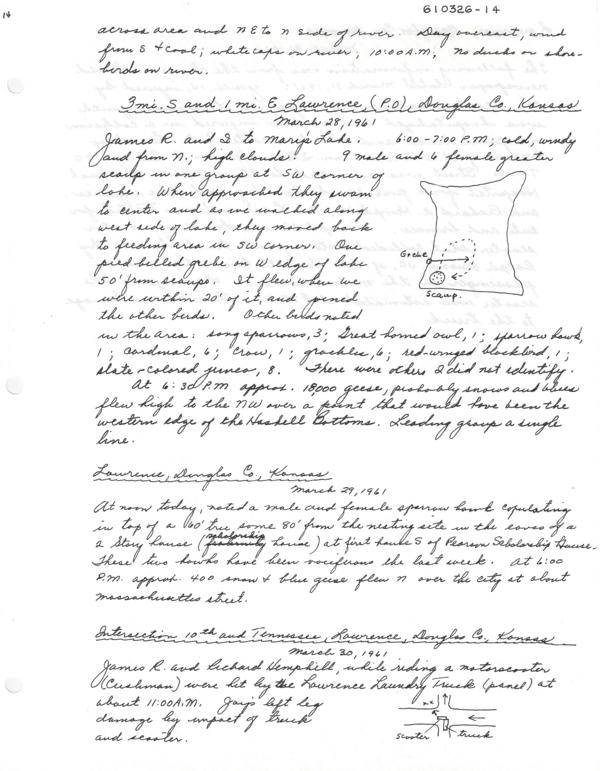 14
610326-14
across area and NE to N side of river. Day overcast, wind
from S & cool; whitecaps on river; 10:00 A.M., No ducks or shore-
birds on river.
3 mi. S and 1 mi. E Lawrence (P.O.), Douglas Co., Kansas
March 28, 1961
James R. and I to Mary's Lake. 6:00-7:00 P.M; cold, windy
and from N.; high clouds. 9 male and 6 female greater
scaup in one group at SW corner of
lake. When approached they swam
to center and as we walked along
west side of lake, they moved back
to feeding area in SW corner. One
pied billed grebe on W edge of lake
50' from scaups. It flew, when we
were within 20' of it, and joined
the other birds. Other birds noted
Grebe
Scaup.
in the area: song sparrows, 3; Great horned owl, 1; sparrow hawk,
1; Cardinal, 6; Crow, 1; grackles, 6; red-winged blackbird, 1;
slate-colored junco, 8. There were others I did not identify.
At 6:30 P.M approx. 18,000 geese, probably snows and blues
flew high to the NW over a point that would have been the
western edge of the Haskell Bottoms. Leading group a single
line.
Lawrence, Douglas Co., Kansas
March 29, 1961
At noon today, noted a male and female sparrow hawk copulating
in top of a 60' tree some 80' from the nesting site in the eaves of a
2 Story house (scholarship house) at first house S of Pearson Scholarship House.
These two hawks have been vociferous the last week. At 6:00
P.M. approx. 400 snow & blue geese flew N over the city at about
Massachusettes street.
Intersection 10th and Tennessee, Lawrence, Douglas Co., Kansas
March 30, 1961
James R. and Richard Hemphill, while riding a motorscooter
(Cushman) were hit by the Lawrence Laundry Truck (panel) at
about 11:00 A.M. Jay's left leg
damage by impact of truck
and scooter.
xx
scooter
truck